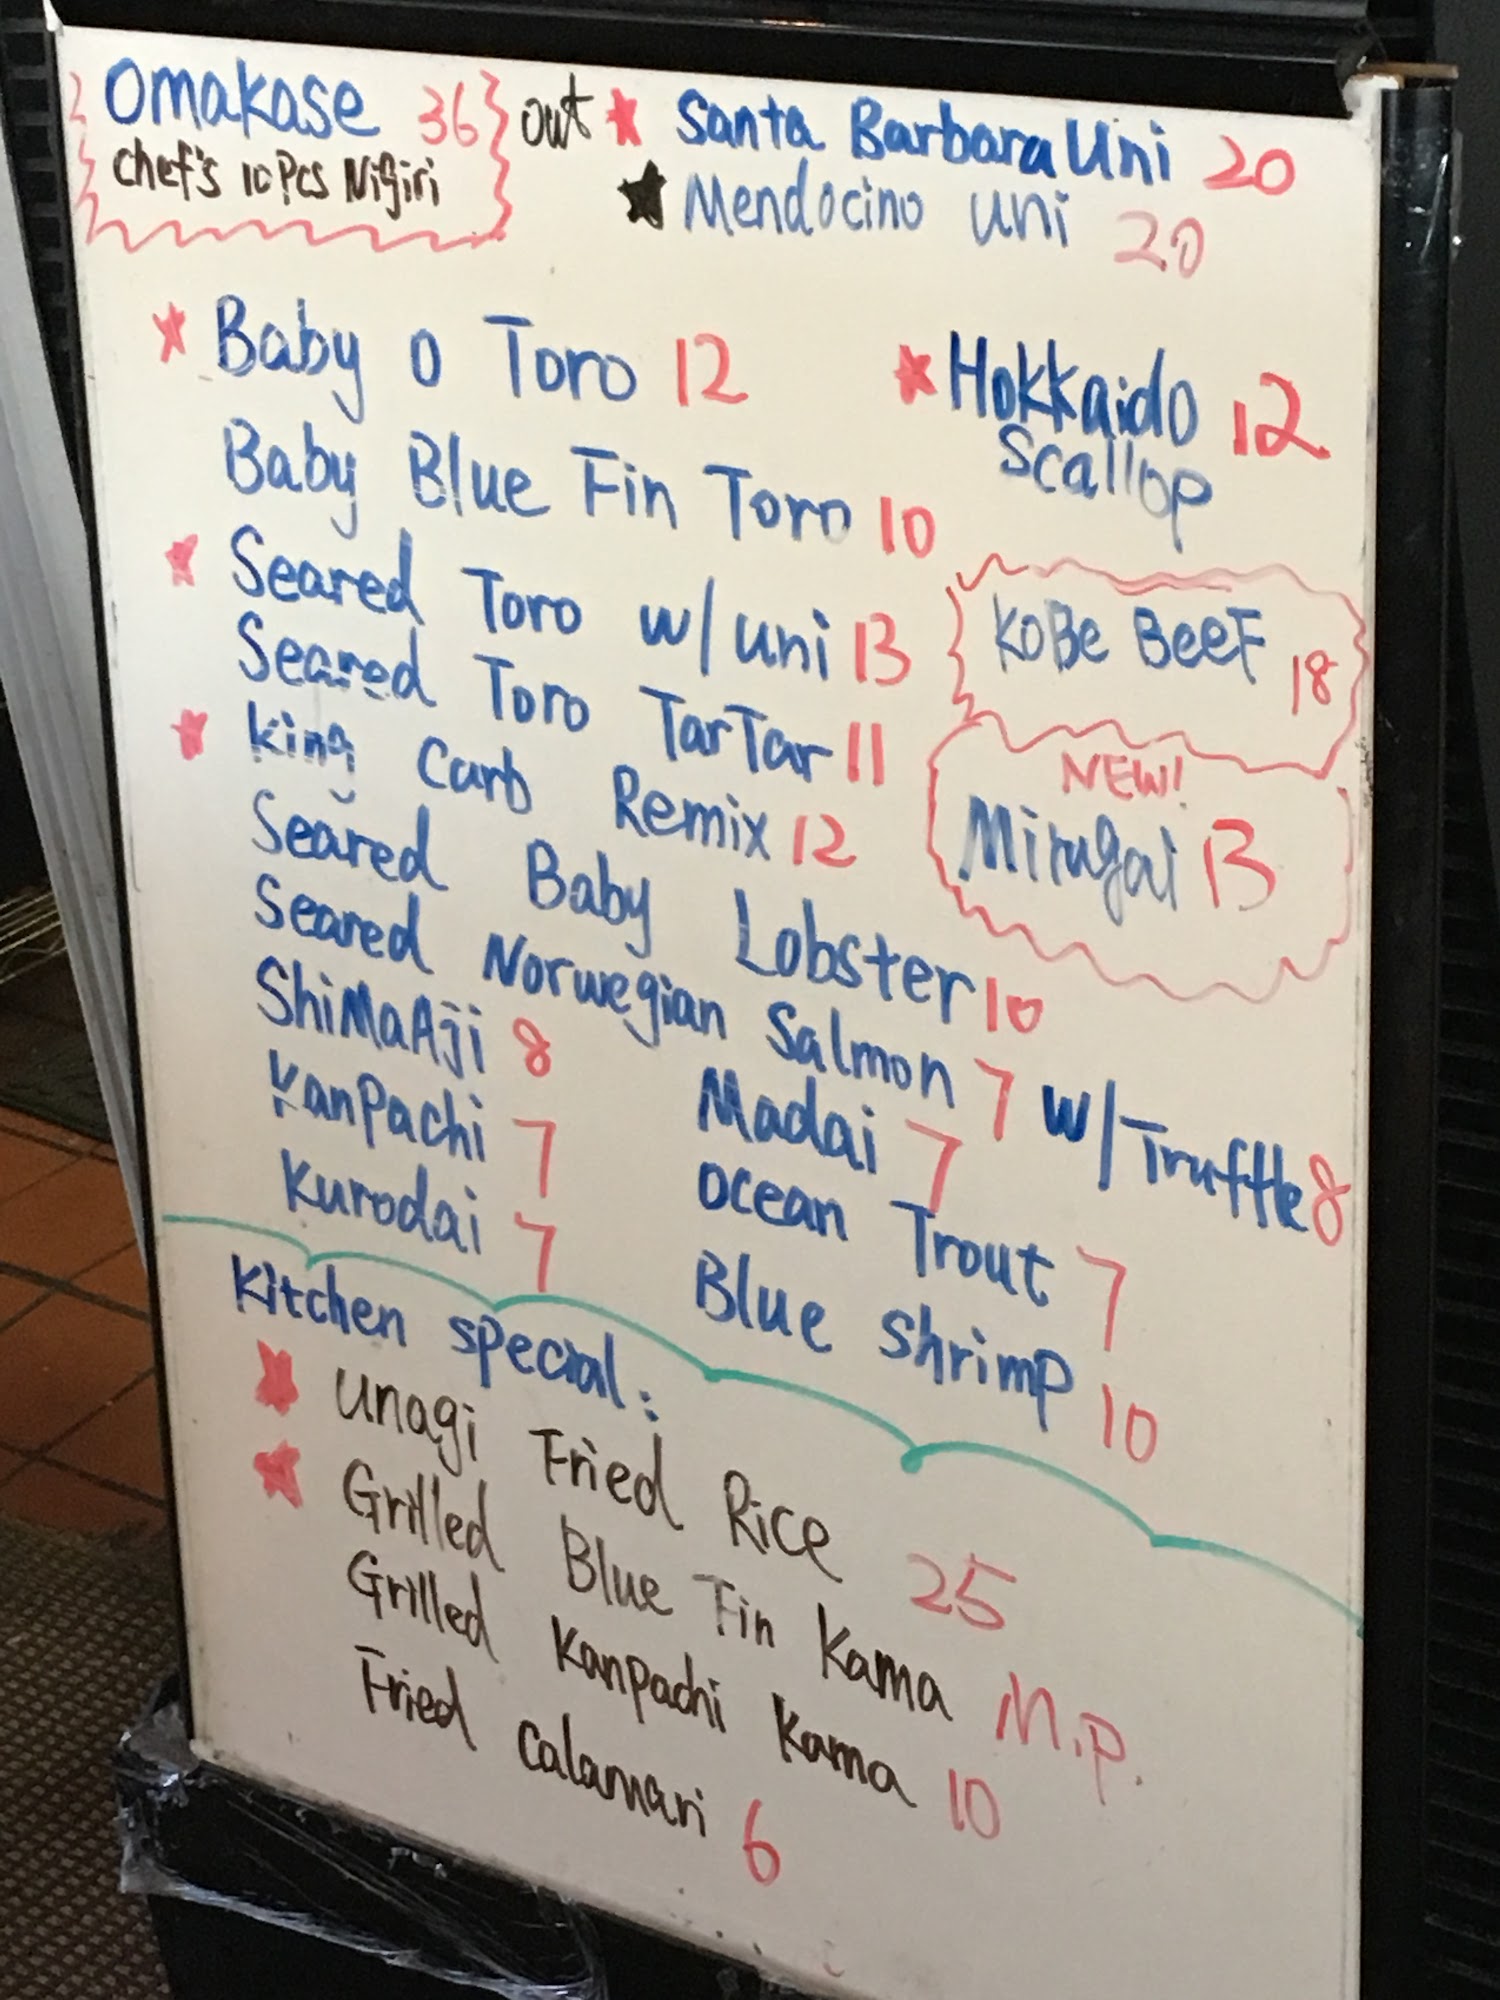 Omakase 36
chef's 10 Pcs Nigiri
out Santa Barbara Uni 20
Mendocino uni 20
Baby o Toro 12
Hokkaido 12
Scallop
Baby Blue Fin Toro 10
Seared Toro w/ uni 13
KoBe BeeF 18
Seared Toro TarTar 11
King Carb Remix 12
NEW!
Mirugai 13
Seared Baby Lobster 10
Seared Norwegian Salmon 7 w/ Truffle 8
ShiMaAji 8
Madai 7
KanPachi 7
Ocean Trout 7
Kurodai 7
Blue shrimp 10
Kitchen special:
Unagi Fried Rice 25
Grilled Blue Fin Kama M.P.
Grilled Kanpachi Kama 10
Fried Calamari 6